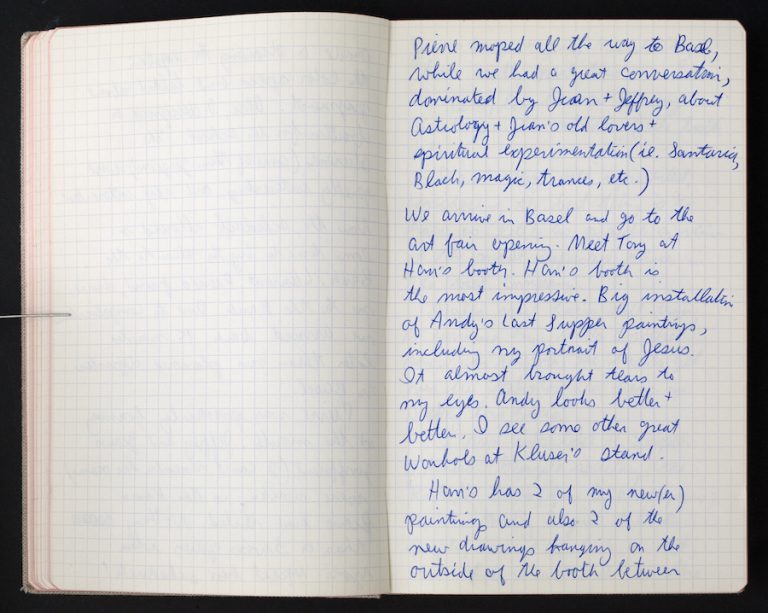 Pierre moped all the way to Basel,
while we had a great conversation,
dominated by Juan + Jeffrey, about
Astrology + Juan's old lovers +
spiritual experimentation (ie. Santaria,
Black, magic, trances, etc.)
We arrive in Basel and go to the
art fair opening. Meet Tony at
Han's booth. Han's booth is
the most impressive. Big installation
of Andy's Last Supper paintings,
including my portrait of Jesus.
It almost brought tears to
my eyes. Andy looks better +
better. I see some other great
Warhols at Kluser's stand.
Han's has 2 of my new(er)
paintings and also 2 of the
new drawings hanging on the
outside of the booth between